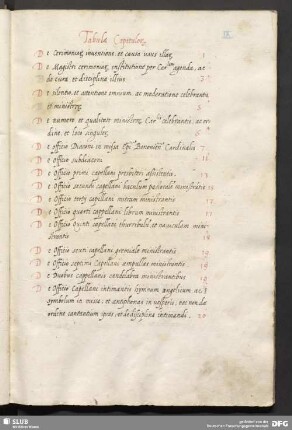 Tabula Capitulorum
De Cerimoniar. inventione, et causa usus illar. 1
De Magistri cerimoniar. institutione per Car.lem agenda, ac
de cura et disciplina illius
De silentio et attentione omnium, ac moderatione celebrantis
et ministror. 5
De numero et qualitate ministror. Car.li celebrantis: ac or
dine et loco singulor.
De officio Diaconi in missa Ep.i Cardinalis
De officio subdiaconi
De Officio primi capellani presbiteri assistentis
De Officio secundi capellani baculum pastorale ministrantis
De officio tertij capellani mitram ministrantis
De Officio quarti cappellani librum ministrantis
De Officio Quinti capellani thuribulum et vasculum mini-
strantis
De Officio sexti capellani gremiale ministrantis
De officio septimi Capellani ampullas ministrantis
De Duobus cappellanis candelabra ministrantibus
De Officio Capellani intimantis hymnum angelicum ac
symbolum in missa: et antiphonas in vesperis, nec non de
ordine cantantium ipsas, et de disciplina intimandi. 20
SLUB
DFG